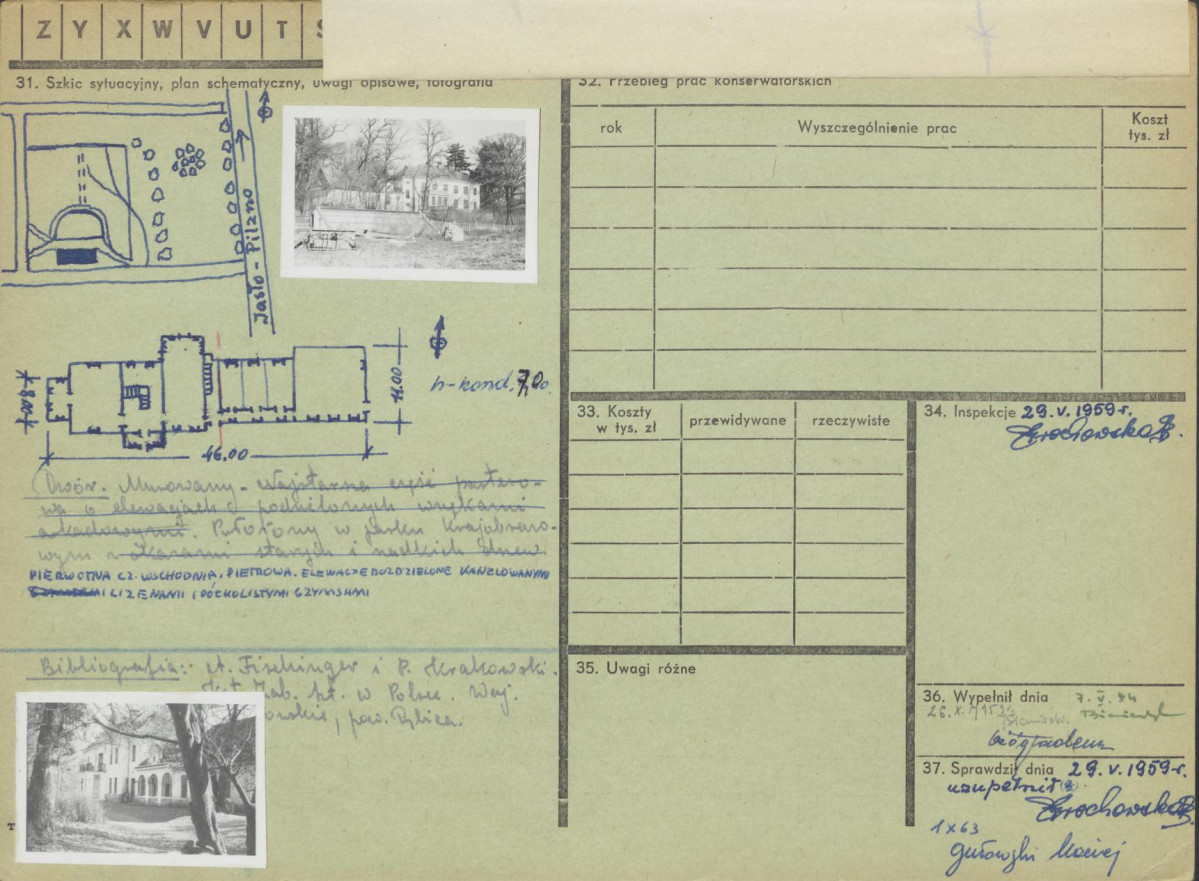 Z Y X W V U T S
31. Szkic sytuacyjny, plan schematyczny, uwagi opisowe, fotografia
Jasło - Pilzno
h-kond. 7,00.
8.00
11.00
46.00
Dwór. Murowany - Najstarsza część partero-
wa o elewacjach podzielonych wnękami
arkadowymi. Położony w parku krajobrazo-
wym z okazami starych i rzadkich drzew.
PIERWOTNA CZ. WSCHODNIA, PIETROWA. ELEWACJE ROZDZIELONE KANELOWANYMI
LIZENAMI I PÓŁKOLISTYMI GZYMSAMI
Bibliografia: A. Fischinger i P. Krakowski.
Kat. Zab. szt. w Polsce. Woj.
pow. Dębica.
32. Przebieg prac konserwatorskich
rok
Wyszczególnienie prac
Koszt
tys. zł
33. Koszty
w tys. zł
przewidywane
rzeczywiste
34. Inspekcje 29.V.1959 r.
35. Uwagi różne
36. Wypełnił dnia 7.V.84
26.X.1959 r.
37. Sprawdził dnia 29.V.1959 r.
uzupełnił
1 X 63
Maciej
T